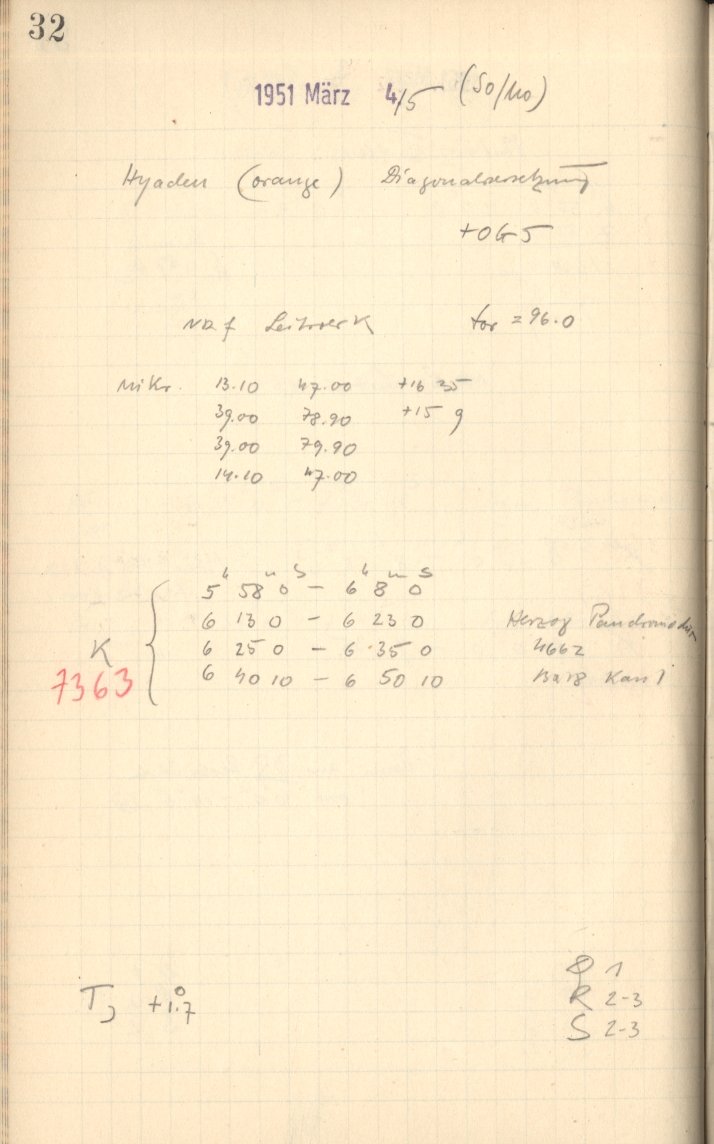 32
1951 März 4/5 (So/Mo)
Hyaden (orange) Diagonalversetzung
+OG5
Leitwerk for = 96.0
Mikr. 13.10 47.00 +16 35
39.00 78.90 +15 9
39.00 79.90
14.10 47.00
h m s h m s
5 58 0 – 6 8 0
6 13 0 – 6 23 0 Herzog
K 6 25 0 – 6 35 0 4662
7363 6 40 10 – 6 50 10
T +1.°7
Q 1
R 2-3
S 2-3